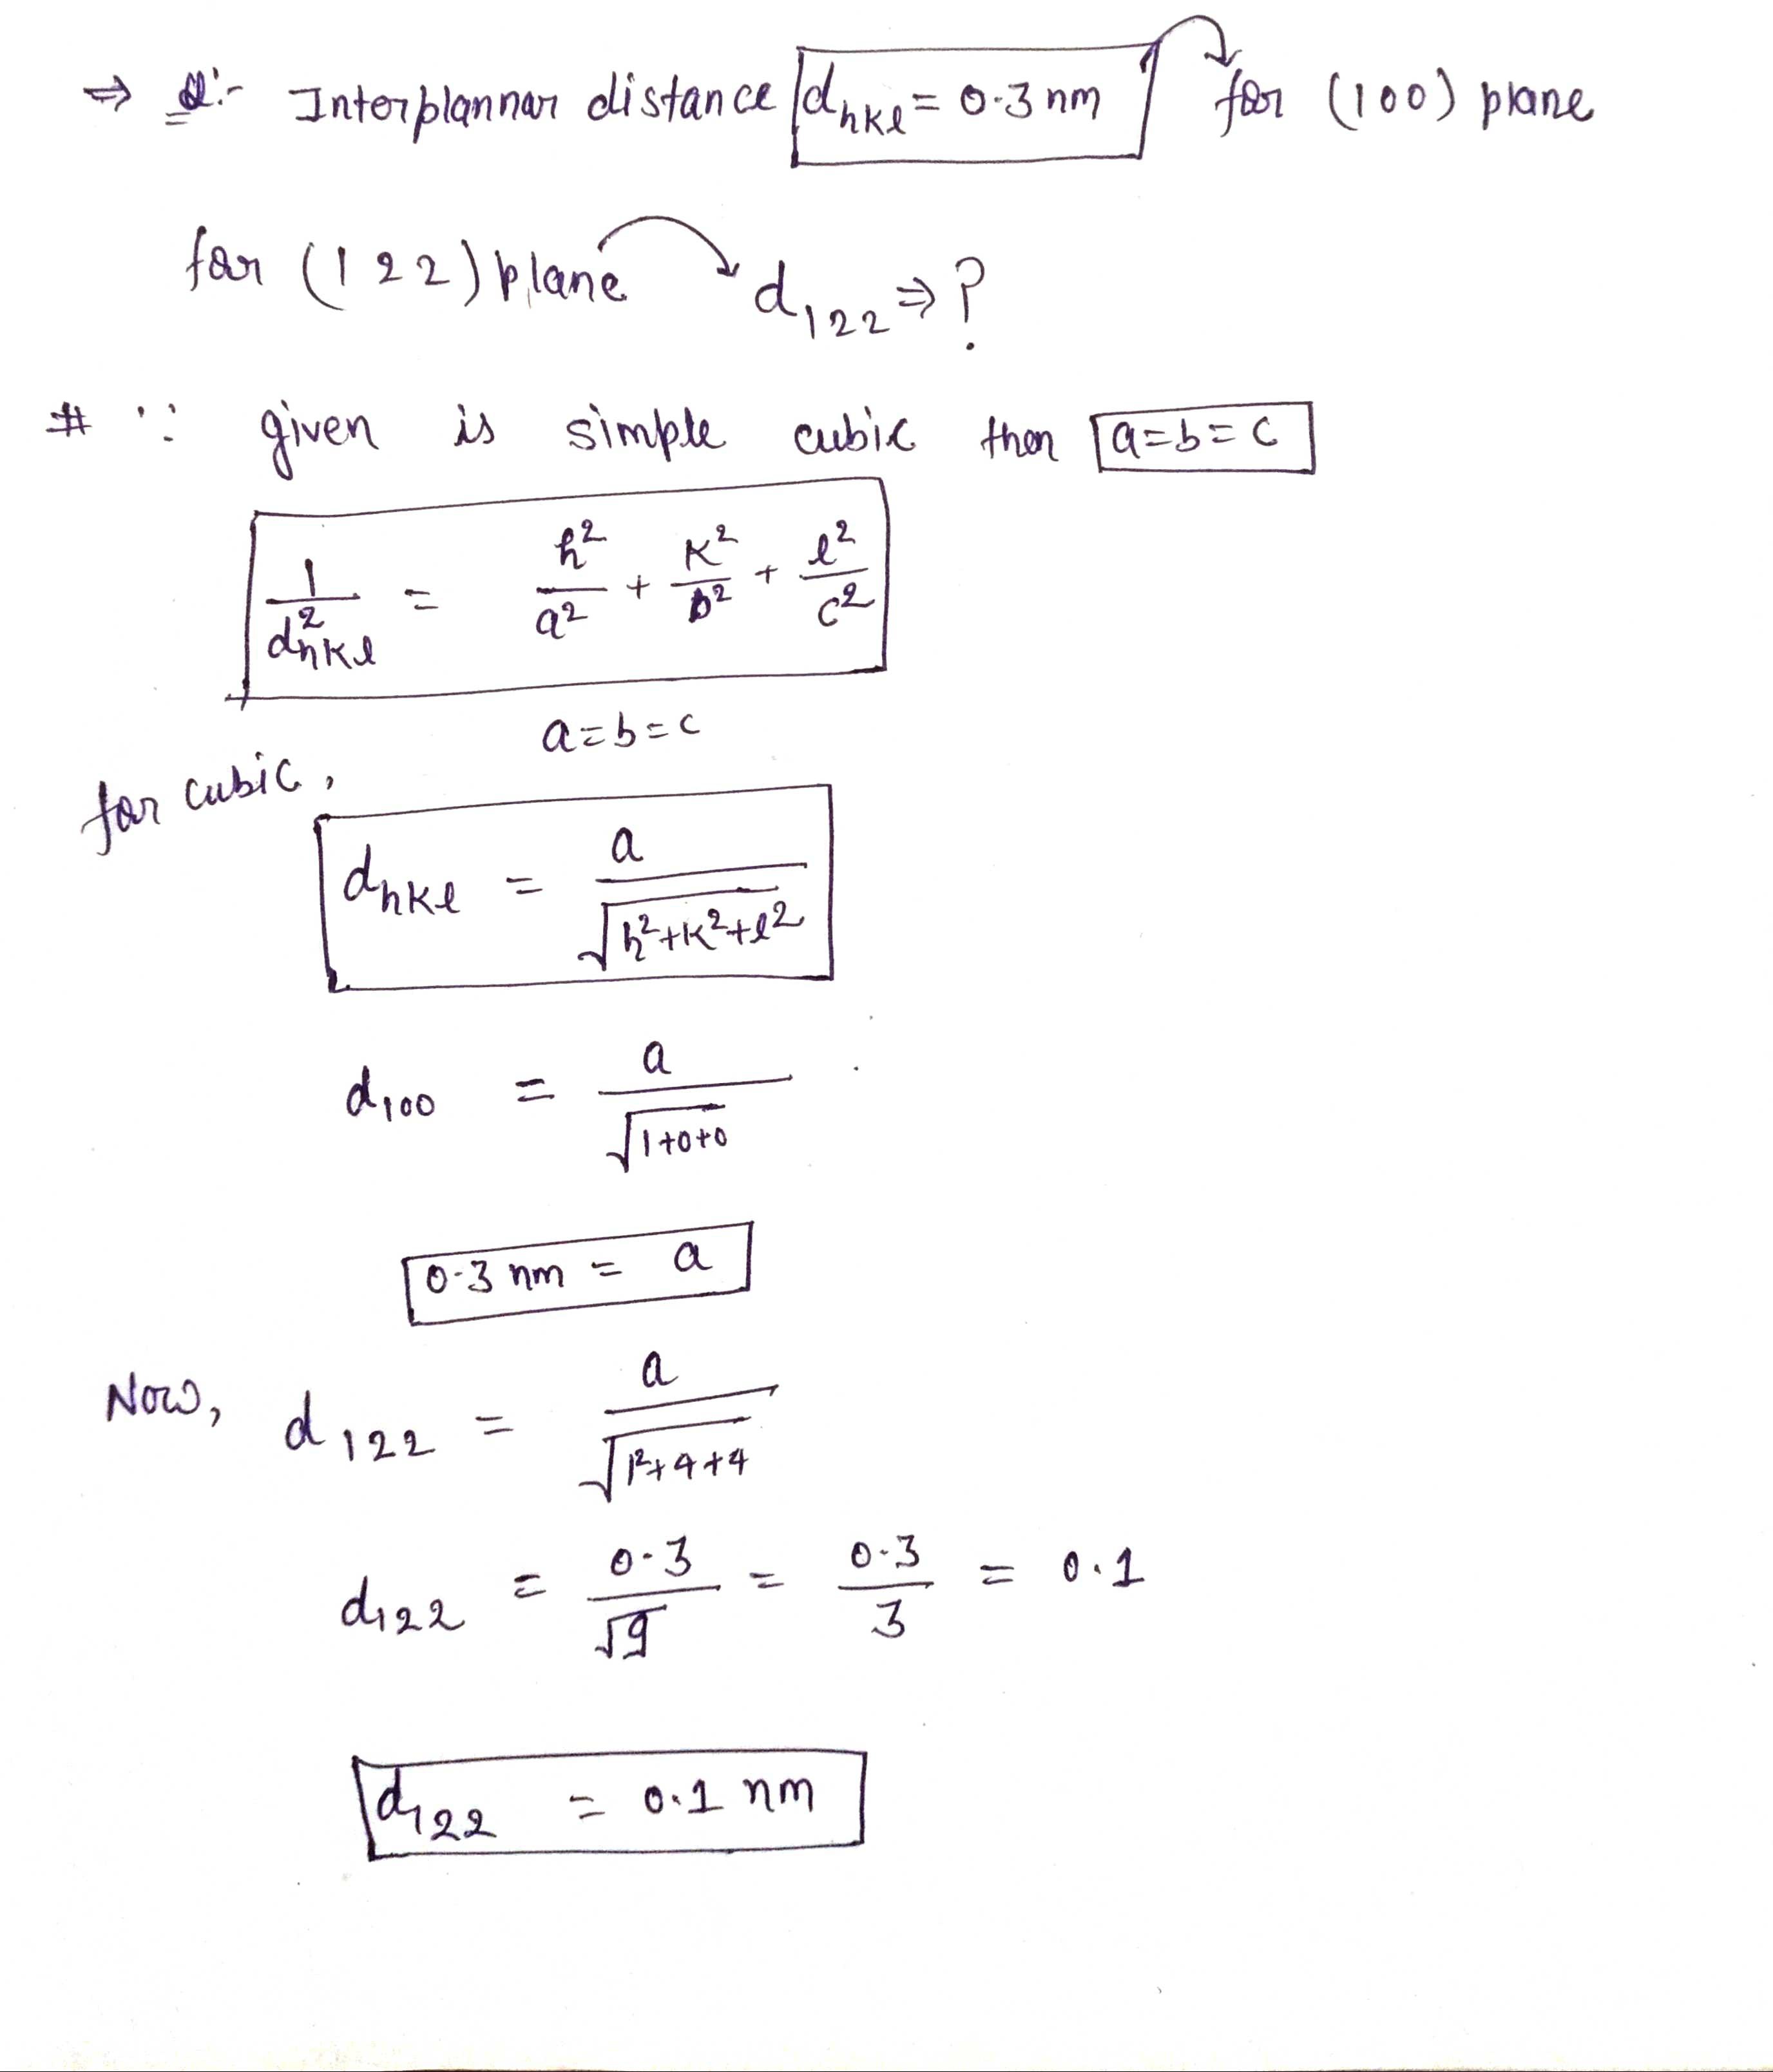 ⇒ Q:- Interplannar distance d_hkl = 0.3 nm for (100) plane
for (122) plane d_122 ⇒ ?
# ∵ given is simple cubic then a=b=c
1/d²_hkl = h²/a² + k²/b² + l²/c²
a=b=c
for cubic,
d_hkl = a/√(h²+k²+l²)
d_100 = a/√(1+0+0)
0.3 nm = a
Now, d_122 = a/√(1²+4+4)
d_122 = 0.3/√9 = 0.3/3 = 0.1
d_122 = 0.1 nm